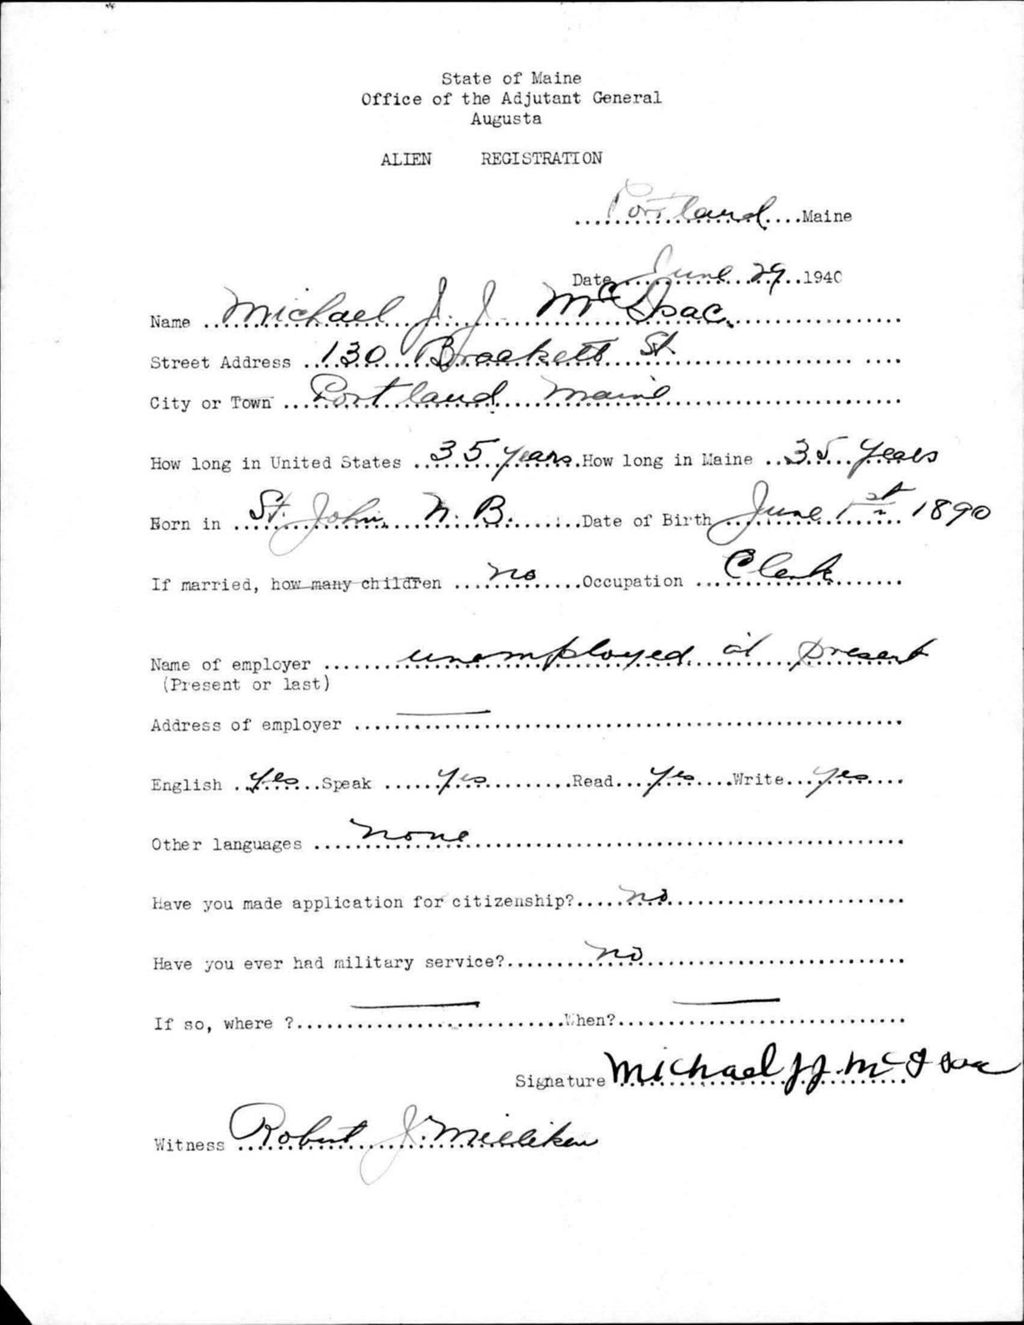 State of Maine
Office of the Adjutant General
Augusta
ALIEN REGISTRATION
Portland Maine
Date June 29 1940
Name Michael J. J. McIsac.
Street Address 130 Brackett St.
City or Town Portland Maine
How long in United States 35 years How long in Maine 35 years
Born in St. John, N. B. Date of Birth June 1st 1890
If married, how many children no Occupation Clerk
Name of employer unemployed at present
(Present or last)
Address of employer
English Yes Speak Yes Read Yes Write Yes
Other languages none
Have you made application for citizenship? no
Have you ever had military service? no
If so, where ? When?
Signature Michael J J. McIsac
Witness Robert J. Milliken